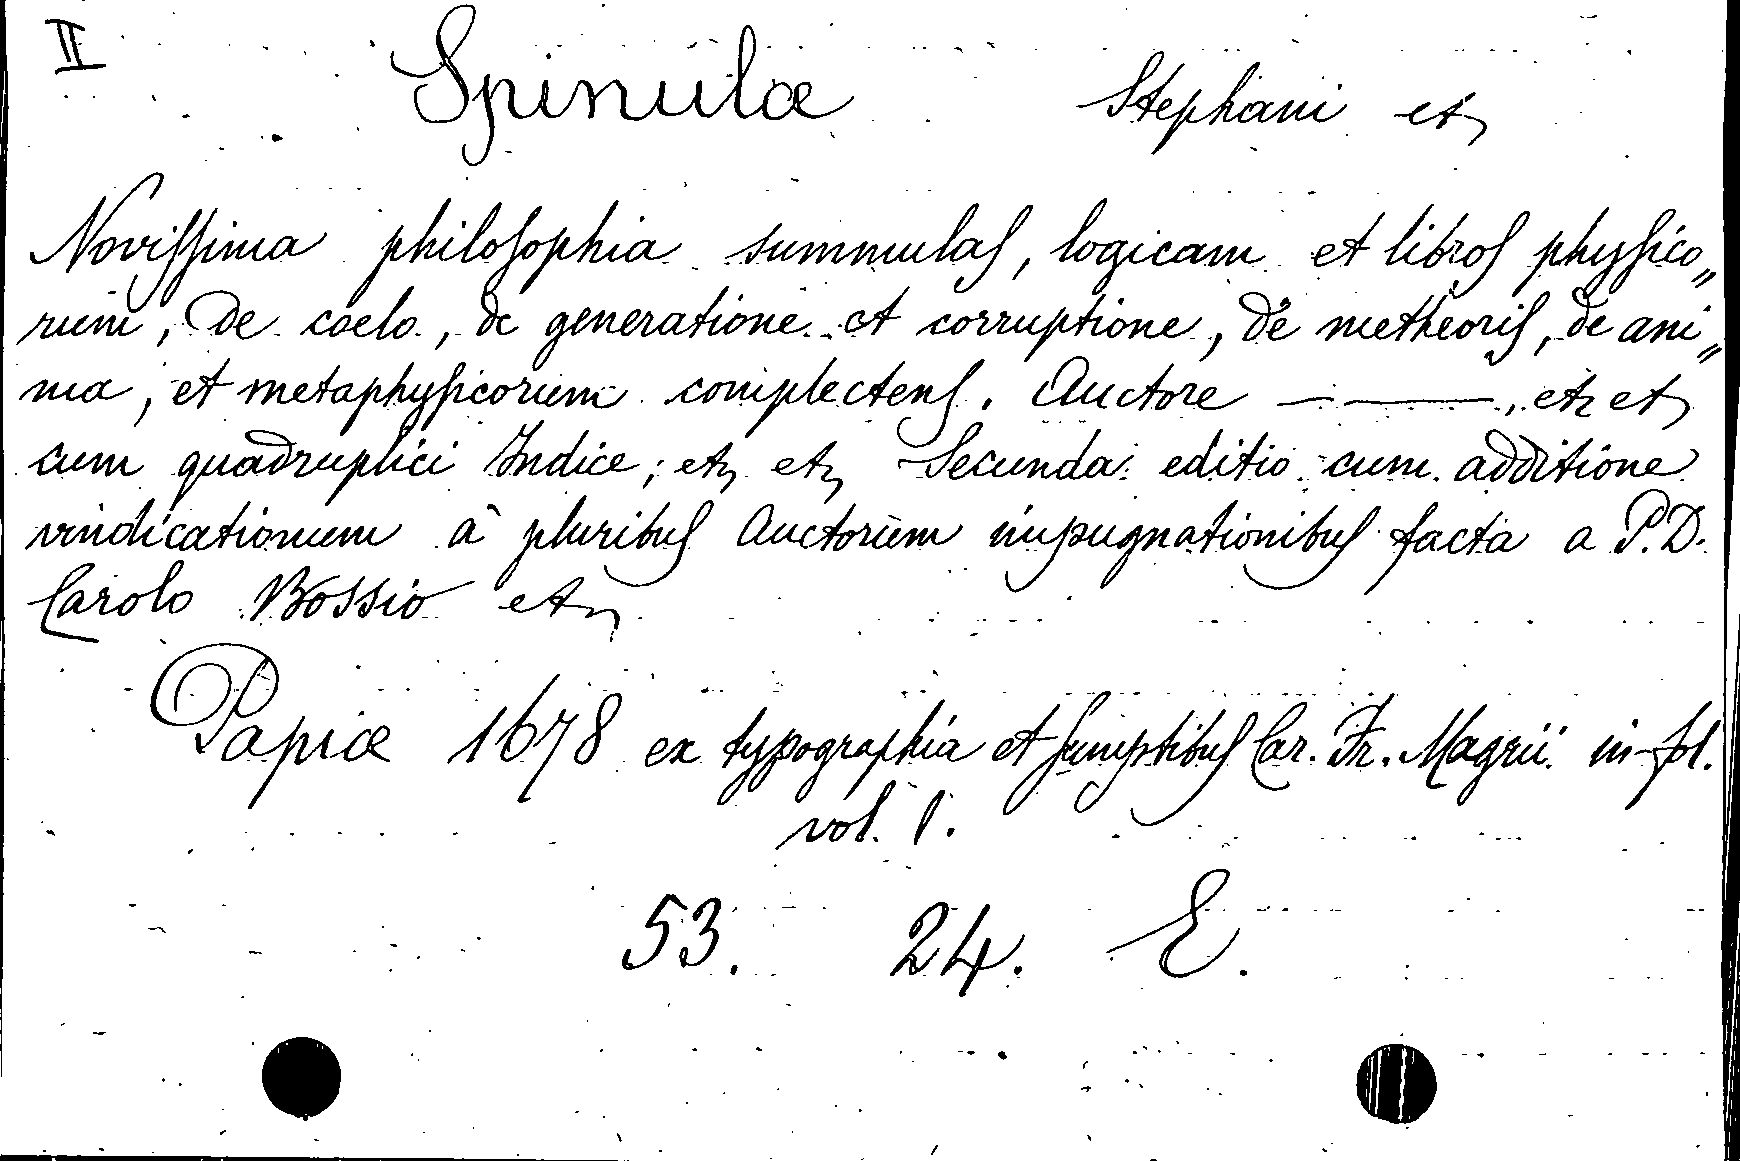 II
Spinulæ Stephani etz
Novissima philosophia summulas, logicam et libros physico„
rum, de coelo, de generatione et corruptione, de metheoris, de ani„
ma, et metaphysicorum complectens. Auctore — ——, etz etz
cum quadruplici Indice; etz etz Secunda editio cum additione
vindicationum à pluribus Auctorum impugnationibus facta a P.D.
Carolo Bossio etz
Papiæ 1678 ex typographia et sumptibus Car. Fr. Magrii in-fol.
vol. 1.
53. 24. E.